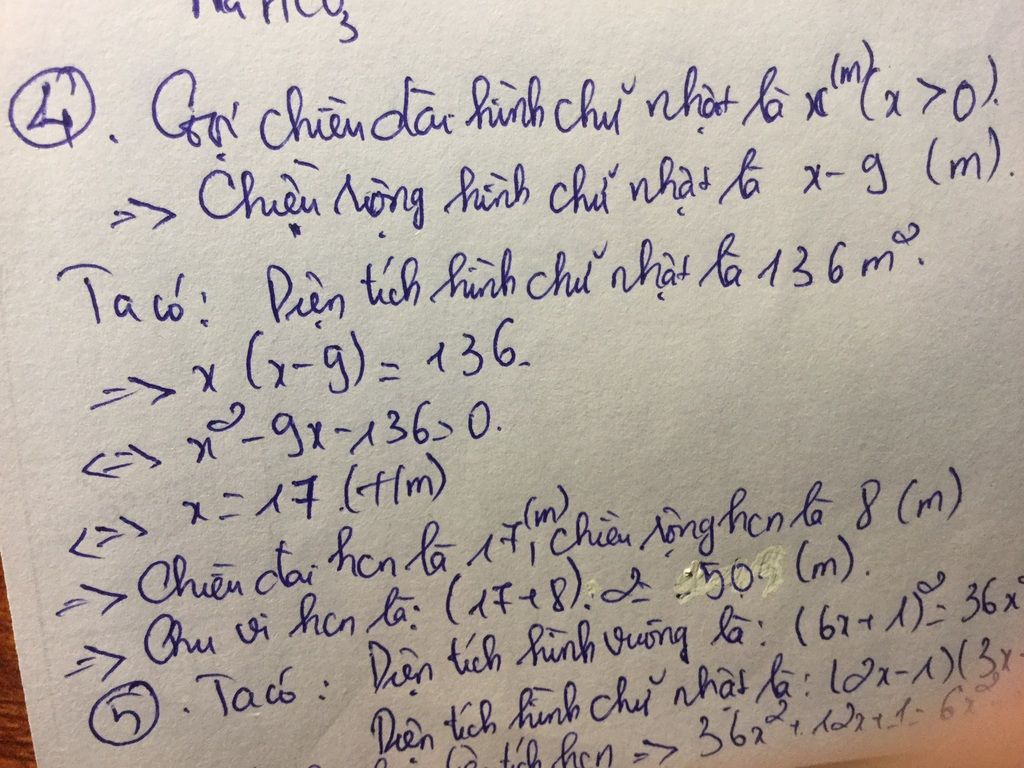 NaHCO3
④. Gọi chiều dài hình chữ nhật là x (m) (x > 0).
=> Chiều rộng hình chữ nhật là x - 9 (m).
Ta có: Diện tích hình chữ nhật là 136 m².
=> x (x - 9) = 136.
<=> x² - 9x - 136 = 0.
<=> x = 17 (t/m)
=> Chiều dài hcn là 17 (m), chiều rộng hcn là 8 (m)
=> Chu vi hcn là: (17 + 8). 2 = 50 (m).
⑤. Ta có: Diện tích hình vuông là: (6x + 1)² = 36x
Diện tích hình chữ nhật là: (2x - 1)(3x
tích hcn => 36x² + 12x + 1 - 6x²